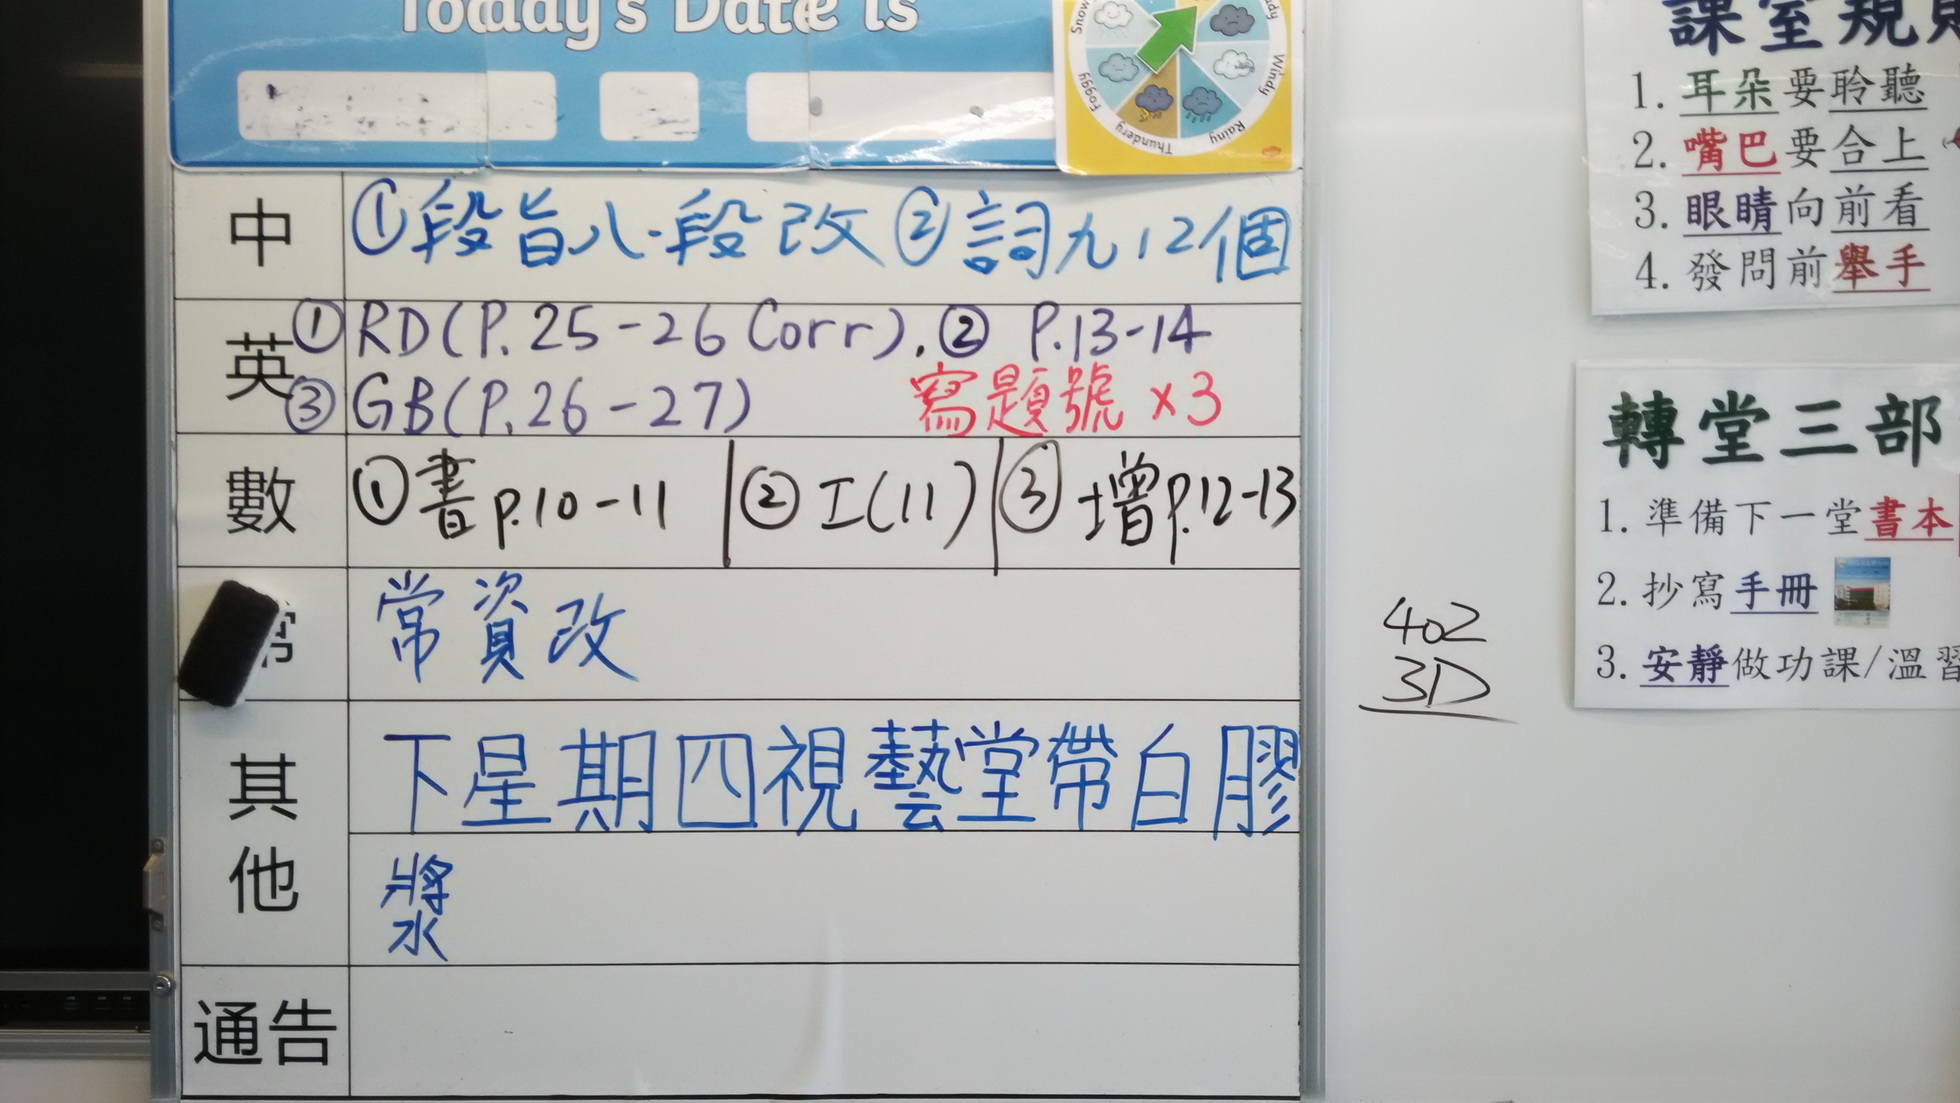 Today's Date is
Snow
Windy
Rainy
Thundery
Foggy
中 ①段旨八.段改 ②詞九12個
英 ①RD(P.25-26 Corr). ② P.13-14
③GB(P.26-27) 寫題號 x3
數 ①書p.10-11 | ②工(11) | ③增p.12-13
常資改
其他 下星期四視藝堂帶白膠
漿
通告
402
3D
課室規則
1. 耳朵要聆聽
2. 嘴巴要合上
3. 眼睛向前看
4. 發問前舉手
轉堂三部
1. 準備下一堂書本
2. 抄寫手冊
3. 安靜做功課/溫習